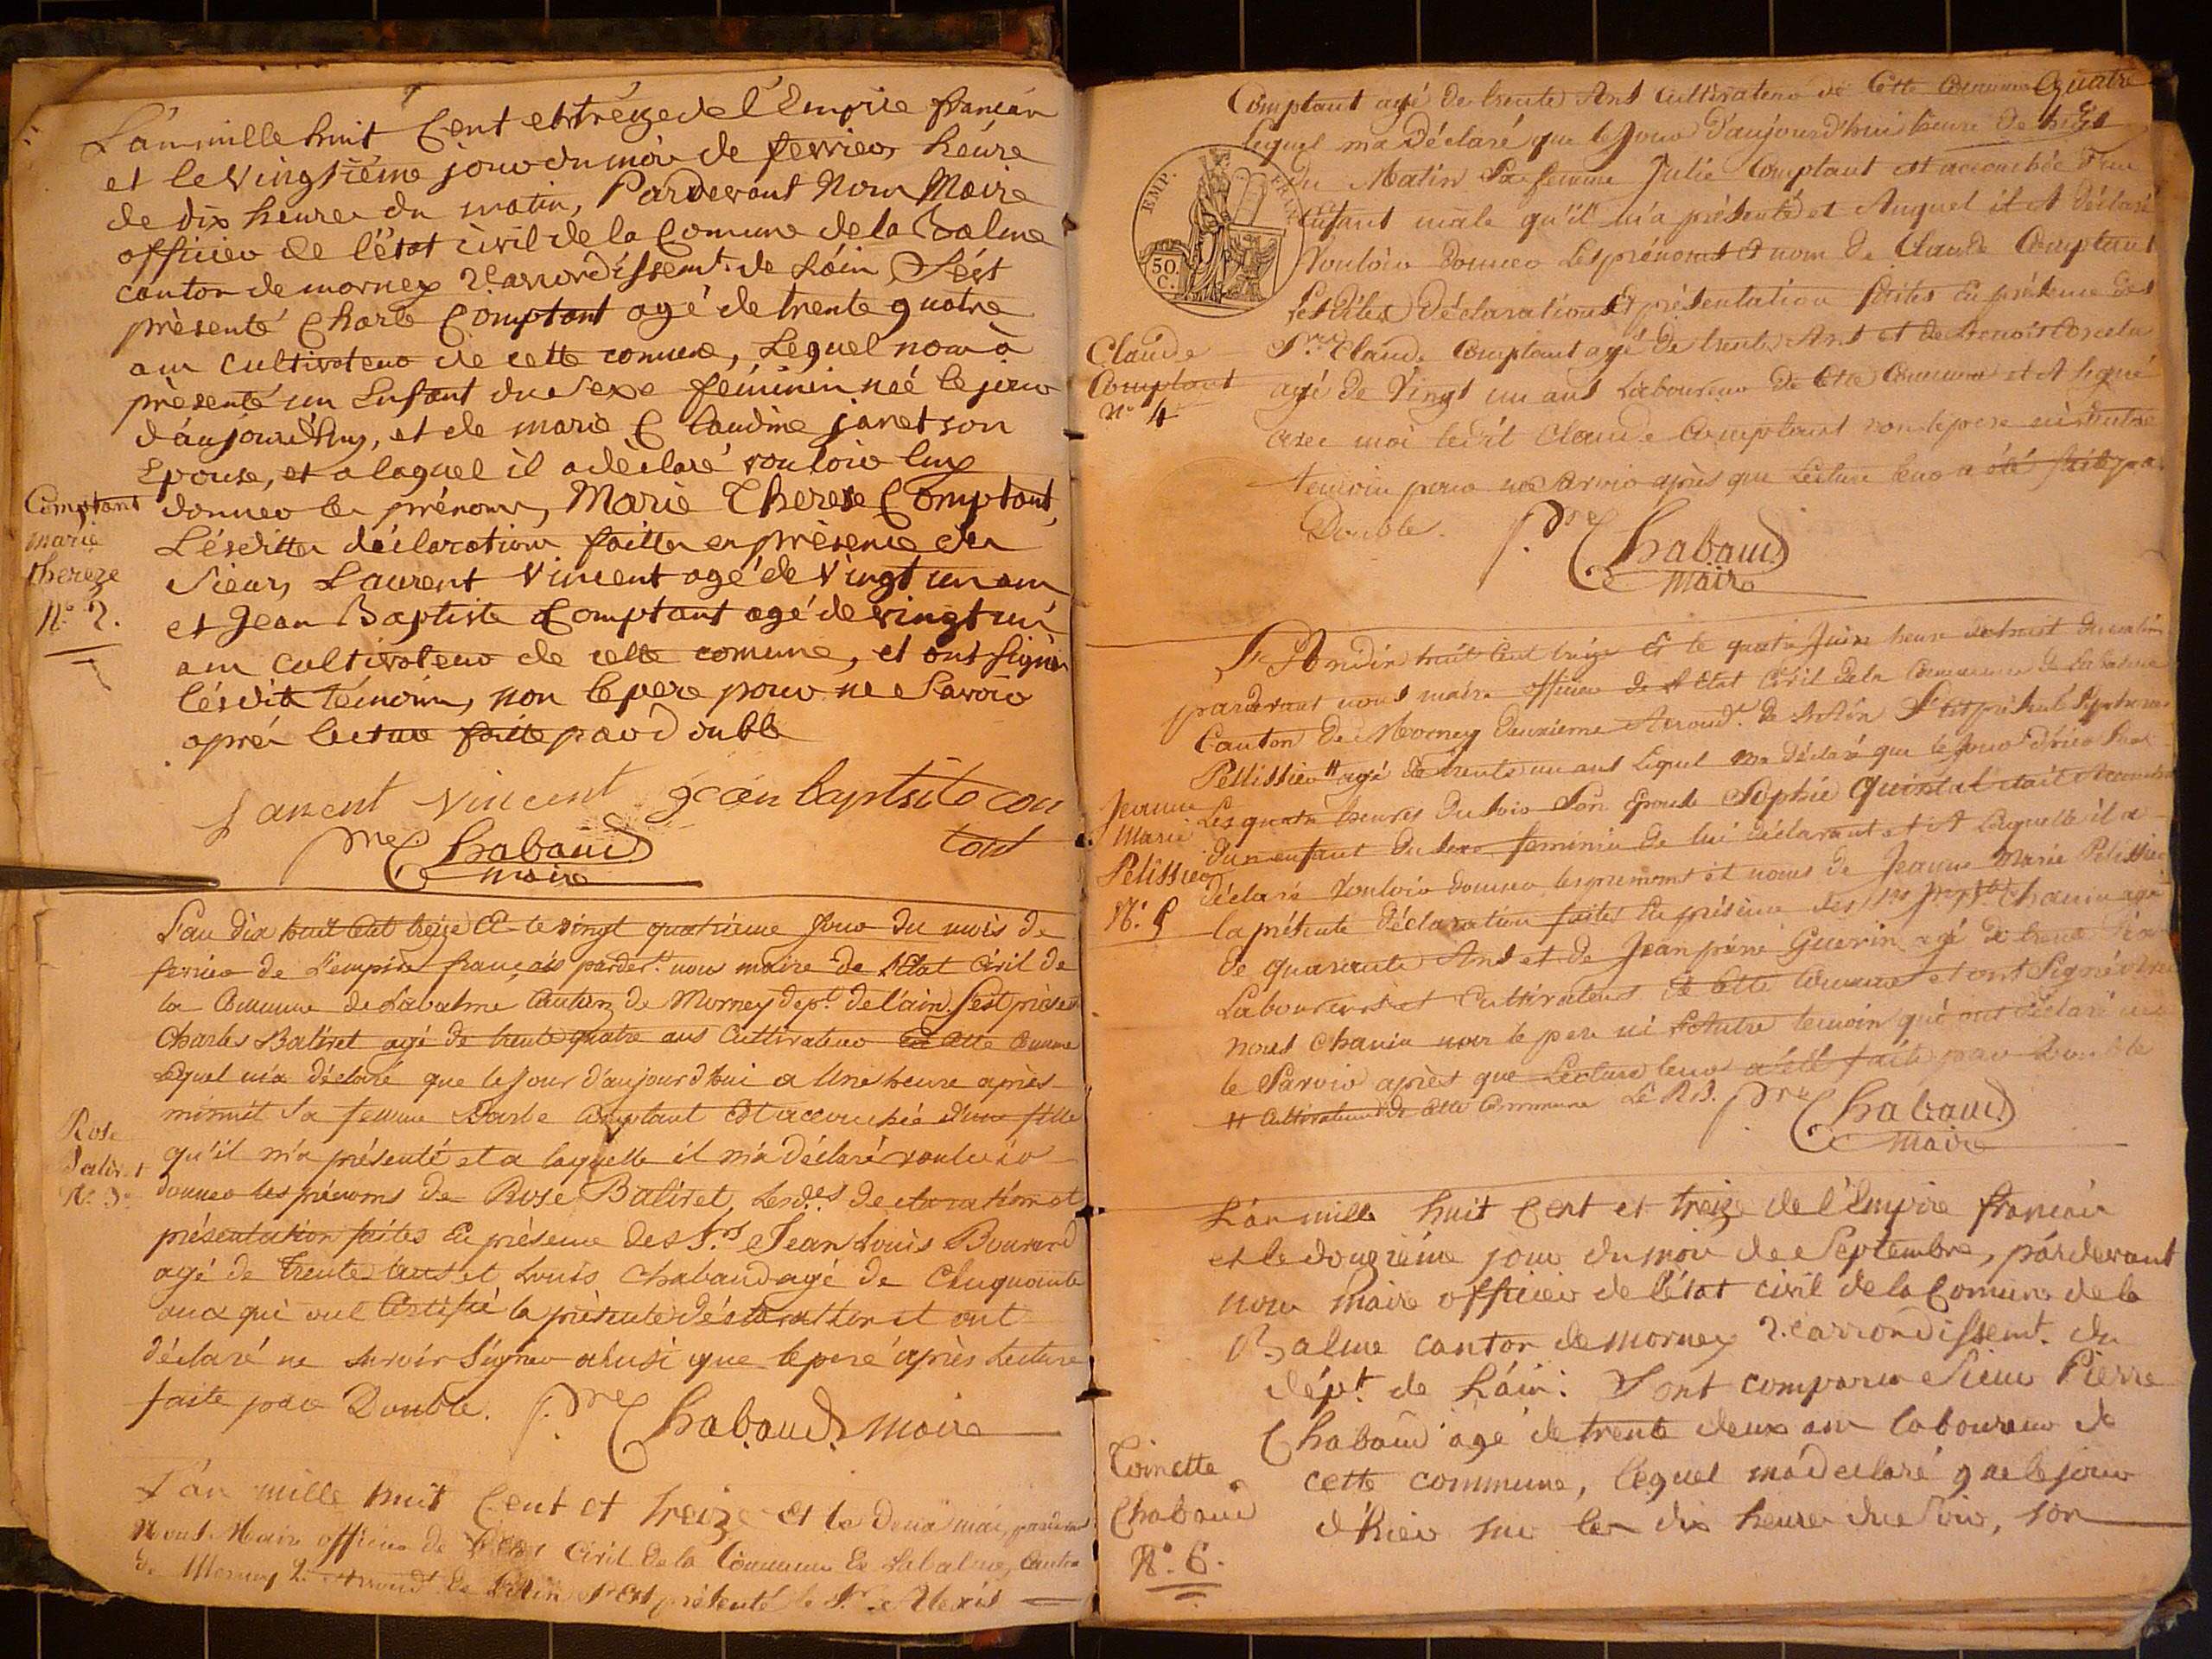 L'an mille huit Cent et tréize de l'Empire francáis
et le vingtiéme jour du mois de fevrier héure
de dix heures du matin, Pardevant Nous Maire
officier de l'état civil de la Comune de la Balme
canton de mornex 2.e arrondissemt. de Láin S'ést
présenté Charle Comptant agé de trente quatre
ans cultivateur de cette comune, Lequel nous à
présenté un Enfant du sexe féminin née le jour
d'áujourd'huy, et de marie Claudine janet son
Epouse, et a laquel il a déclaré vouloir luy
donner les prénoms, Marie Therese Comptant,
Lésdittes déclarations faittes en présence des
Sieurs Laurent Vincent agé de Vingt un ans
et Jean Baptiste Comptant agé de vingt un
ans cultivateur de cette comune, et ont signés
lésdits témoins, non le pere pour ne Savoir
aprés lecture faite par double
Comptant
marie
thereze
N.° 2.
Laurent vincent jean baptsite con
tout
P.re Chabaud
maire
L'an dix huit Cent treize Et le vingt quatrieme Jour du mois de
fevrier de L'empire français parder.t nous maire de l'Etat Civil de
la Commune de Labalme Canton de Morney dep.t de l'ain. s'est présenté
Charles Baliret agé de trente quatre ans Cultivateur de Cette Commune
Lequel m'a déclaré que le Jour d'aujourd'hui a Une heure après
minuit Sa femme Barbe Comptant Est accouchée d'une fille
qu'il m'a présenté et a laquelle il m'a déclaré vouloir
donner les prénoms de Rose Baliret, Lesd.es declaration et
présentation faites En présence des S.rs Jean Louis Bourard
agé de Trente ans et Louis Chabaud agé de Cinquante
ans qui ont Certifié la présente déclaration et ont
déclaré ne savoir Signer ainsi que le pere après Lecture
faite par Double. P.re Chabaud. Maire
Rose
Baliret
N.° 3.
L'an mille huit Cent et treize et le deux mai, pardevant
Nous Maire officier de l'Etat Civil de la Commune de Labalme, Canton
de Mornay 2.e Arrond.t de L'Ain s'est présenté le S.r Alexis
Comptant agé de trente Ans Cultivateur de Cette Commune
Lequel m'a Déclaré que le Jour d'aujourd'hui heure de Quatre
du Matin Sa femme Julie Comptant est accouchée d'un
Enfant male qu'il m'a présenté et Auquel il A Déclaré
Vouloir Donner Les prénoms et nom de Claude Comptant
Lesdites Déclarations et présentation faites En présence des
S.rs Claude Comptant agé de trente Ans et de Benoit
agé de Vingt un ans Laboureur de Cette Commune et A Signé
avec moi ledit Claude Comptant non le pere ni l'autre
temoin pour ne savoir après que Lecture leur a été faite par
Double. P.re Chabaud
Maire
EMP. FR
50.
C.
Claude
Comptant
N.° 4
L'An dix huit Cent treize Et le quatre Juin heure de huit du matin
pardevant nous maire officier de l'Etat Civil de la Commune de Labalme
Canton de Mornay Deuxieme Arrond.t de L'Ain S'est présenté
Pellissier # agé de trente un ans Lequel m'a Déclaré que le Jour d'hier Sur
Les quatre heures du soir Son Epouse Sophie Quintal était Accouchée
d'un enfant du sexe feminin de lui déclarant et A laquelle il a
déclaré Vouloir donner les prenoms et noms de Jeanne Marie Pelissier
la présente Déclaration faites En présence des S.rs Chanin agé
de quarante Ans et de Jean pierre Guerin agé de trente
Laboureurs et Cultivateurs de Cette Commune et ont Signé Avec
nous Chanin non le pere ni l'Autre temoin qui ont déclaré ne
le Savoir après que Lecture leur a été faite par Double
# Cultivateur de Cette Commune P.re Chabaud
Maire
Jeanne
Marie
Pelissier
N.° 5
L'an mille huit Cent et treize de l'Empire francáis
et le douziéme jour du mois de Septembre, pardevant
nous Maire officier de l'état civil de la Comune de la
Balme canton de mornex 2.e arrondissemt. du
dépt. de Láin. Sont comparus Sieur Pierre
Chabaud agé de trente deux ans laboureur de
cette commune, lequel m'a declaré que le jour
d'hier sur les dix heures du Soir, son
Toinette
Chabaud
N.° 6.